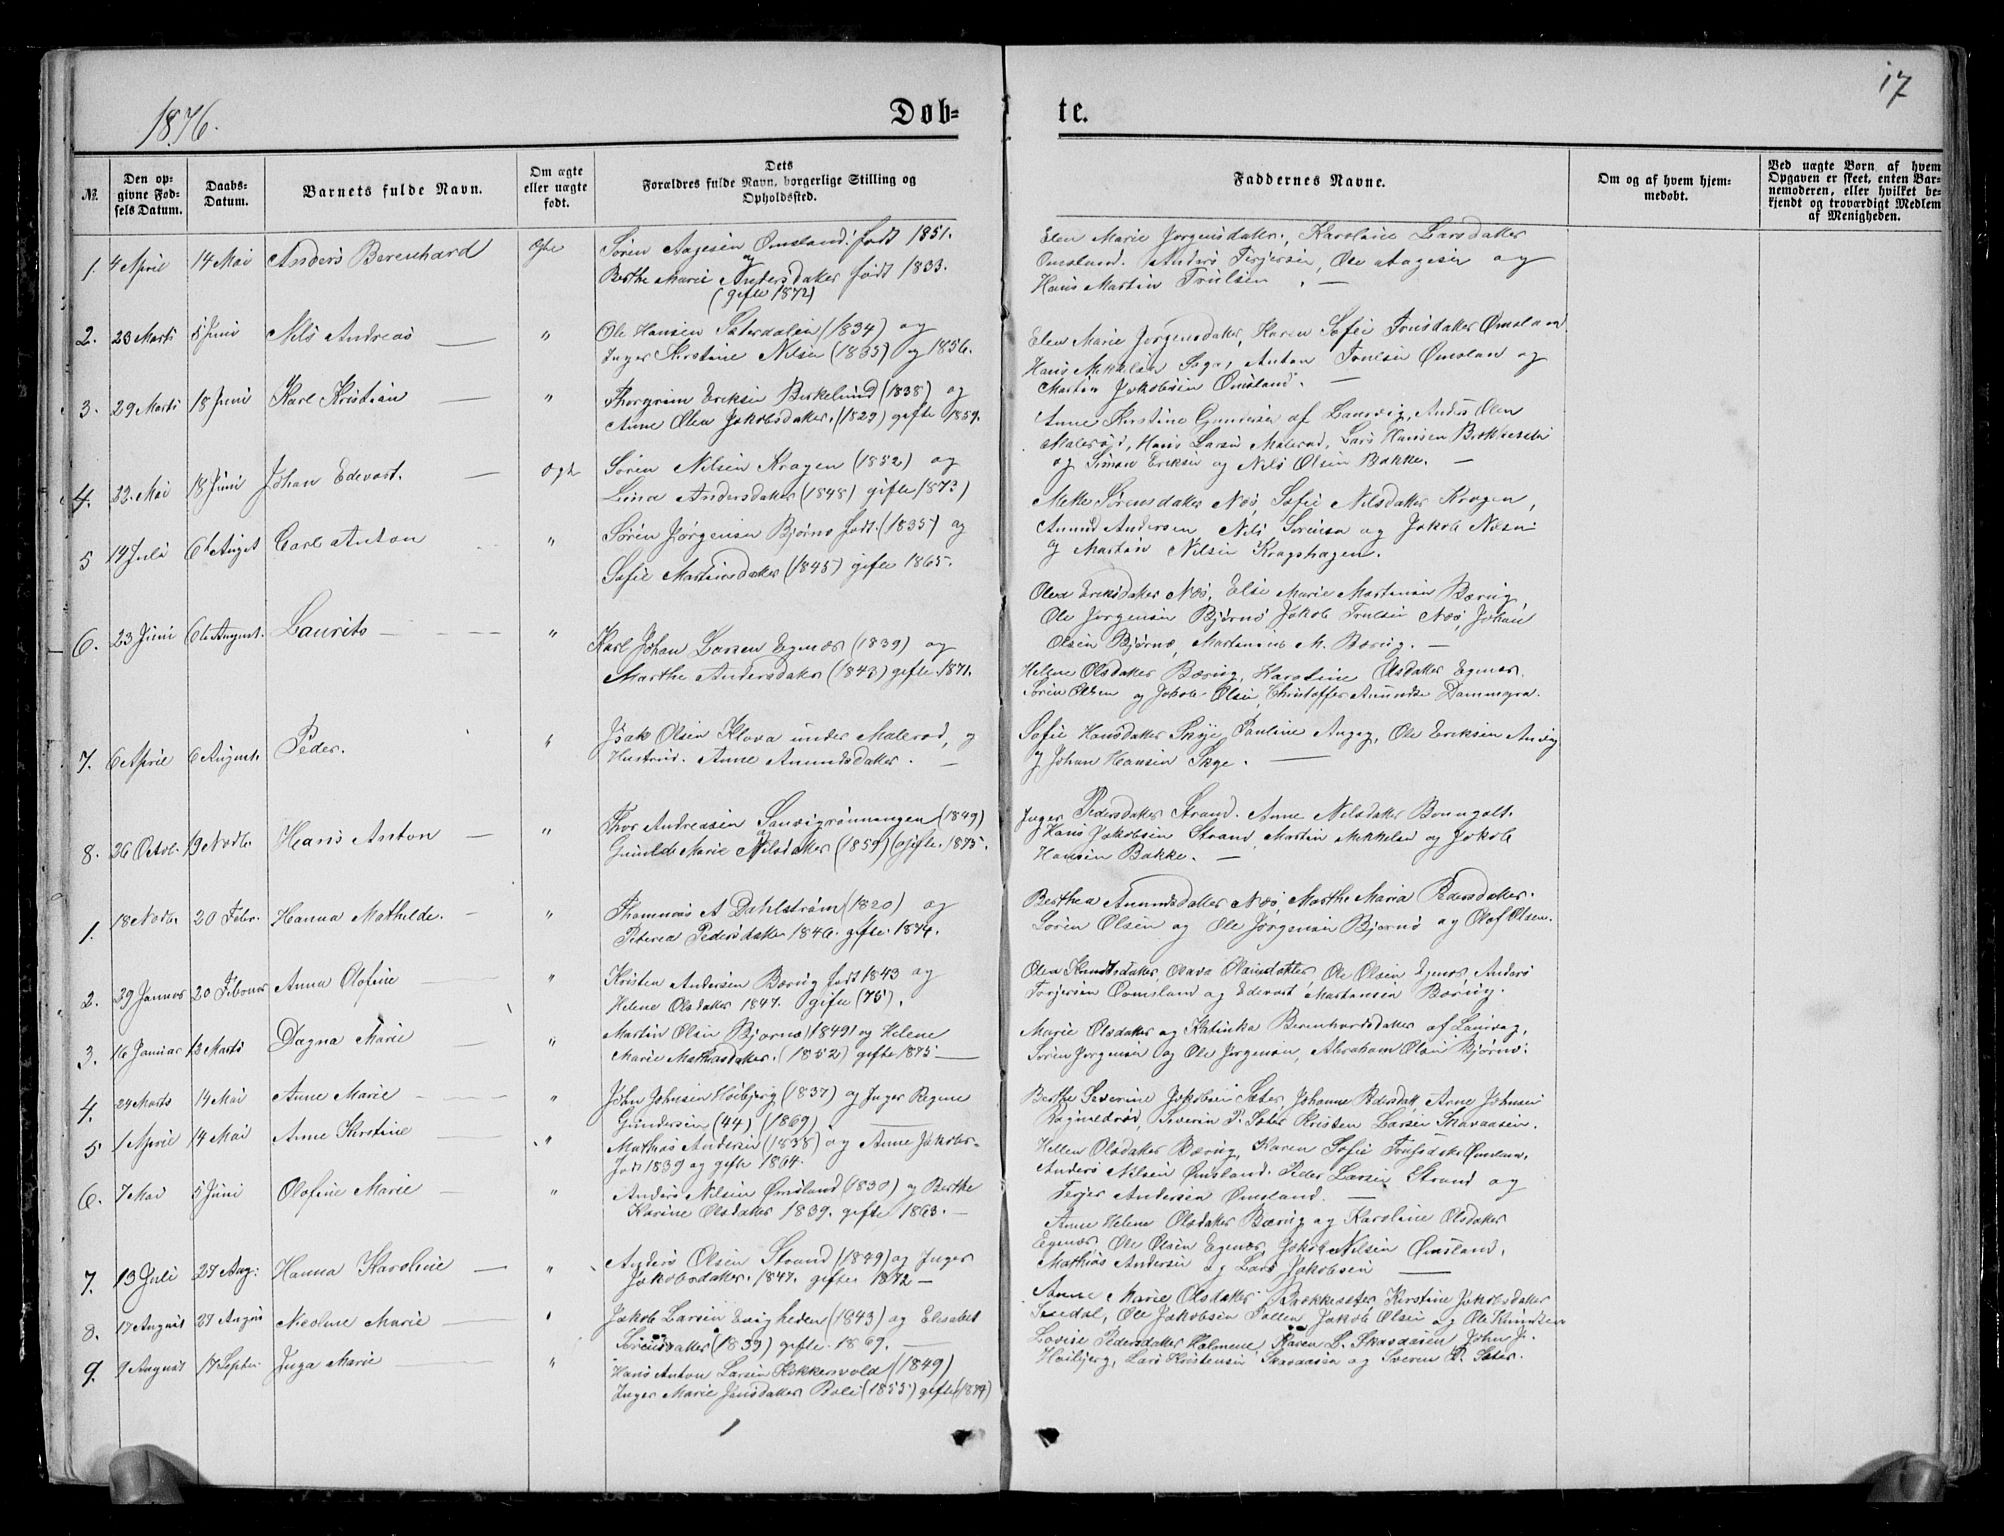 1876.
Døb=
te.
17
№
Den op=
givne Fød=
sels Datum.
Daabs=
Datum.
Barnets fulde Navn.
Om ægte
eller uægte
født.
Dets
Forældres fulde Navn, borgerlige Stilling og
Opholdssted.
Faddernes Navne.
Om og af hvem hjem=
medøbt.
Ved uægte Børn af hvem
Opgaven er skeet, enten Bar=
nemoderen, eller hvilket be=
kjendt og troværdigt Medlem
af Menigheden.
1. 4 April 14 Mai Anders Berenhard Søren Aagesen Omsland født 1851.
og
Berthe Marie Andersdatter født 1833.
(gifte 1872)
Elen Marie Jørgensdatter, Karoline Larsdatter
Omsland. Anders Terjersen, Ole Aagesen og
Hans Martin Trulsen. —
2. 23 Marts 5 Juni Nils Andreas — " Ole Hansen Sæterdalen (1834) og
Inger Kirstine Nilsen (1835) og 1856.
Elen Marie Jørgensdatter, Karen Sofie Omsland
Hans Mikkelsen Anton Trulsen Omslan og
Martin Jakobsen Omsland. —
3. 29 Marts 18 Juni Karl Kristian — " Thorgrim Eriksen Birkelund (1838) og
Anne Olea Jakobsdatter (1829) gifte 1859.
Anne Kirstine Gundersen af Langvig, Anders Olsen
Malerød, Hans Larsen Malerød, Lars Hansen
og Simon Eriksen og Nils Olsen Bakke. —
4. 22. Mai 18 Juni Johan Edevart. — Søren Nilsen Kragen (1852) og
Lina Andersdatter (1848) gifte 1873)
Mette Sørensdatter Næs, Sofie Nilsdatter Kragen,
Anund Andersen, Nils Sørensen og Jakob Nilsen
og Martin Nilsen Kragshagen.
5 14 Juli 6te August Carl Anton " Søren Jørgensen Bjørnø født (1835) og
Sofie Martinsdatter (1845) gifte 1865.
Olea Eriksdatter Næs, Else Marie Martensen Bærug,
Ole Jørgensen Bjørnø Jakob Trulsen Næs, Johan
Olsen Bjørnø, Martenius M. Bærug. —
6. 23 Juni 6te August. Laurits — " Karl Johan Larsen Egenæs (1839) og
Marthe Andersdatter (1843) gifte 1871.
Helene Olsdatter Bærug, Karoline Olsdatter Egenæs.
Søren Olsen og Jakob Olsen, Christoffer Anundsen
7. 6 April 6 August. Peder. " Isak Olsen Kleva under Malerød, og
Hustrue. Anne Anundsdatter. —
Sofie Hansdatter Skye, Pauline Ole Eriksen
og Johan Hansen Skye. —
8. 26 Octob. 19 Novbr. Hans Anton — " Thor Andreasen (1849)
og
Gunilde Marie Nilsdatter (1859) (gifte. 1875.
Inger Pedersdatter Strand. Anne Nilsdatter
Hans Jakobsen Strand, Martin Mikkelsen og Jakob
Hansen Bakke. —
1. 18 Novbr. 20 Febr. Hanna Mathilde. — " Thommas A Dahlstrøm (1820) og
Peterea Pedersdatter 1846. gifte 1874.
Berthea Anundsdatter Næs, Marthe Maria Pedersdatter.
Søren Olsen og Ole Jørgensen Bjørnø og Olaf Olsen.
2. 29 Januar 20 Febuar Anna Olefine — " Kristen Andersen Bærug født 1843 og
Helene Olsdatter 1847. gifte (75).
Olea Knudtsdatter, Ole Olsen Egenæs, Anders
Terjersen Oomsland og Edevart Martensen Bærug.
3. 16 Januar 12 Marts Dagna Marie " Martin Olsen Bjørnø (1849) og Helene
Marie Mathiasdatter. (1852) gifte 1875 —
Marie Olsdatter og Katinka Berenhardsdatter af Langvag,
Søren Jørgensen og Ole Jørgensen, Abraham Olsen Bjørnø.
4. 24 Marts 14 Mai Anne Marie — " John Johnsen Høibjerg (1837) og Inger Regine
Gundersen (44) (1869). —
Berthe Severine Jakobsen Sæter, Johanne Pedersdatt, Arne Johnsen
Rognledrød, Severin P. Sæter Kristen Larsen Skavaasen.
5 1 April 14 Mai Anne Kirstine — " Mathias Andersen (1838) og Anne Jakobs-
født 1839 og gifte 1864.
Hellen Olsdatter Bærug, Karen Sofie Omsland,
Anders Nilsen Omsland. Peder Larsen Strand og
Terjer Andersen Omsland. —
6. 7 Mai 5 Juni Olefine Marie — " Anders Nilsen Omsland (1830) og Berthe
Karine Olsdatter 1839. gifte 1863. —
Anne Helene Olsdatter Bærug og Karoline Olsdatter
Egenæs, Ole Olsen Egenæs, Jakob Nilsen Omsland,
Mathias Andersen og Lars Jakobsen —
7. 13 Juli 27 Aug: Hanna Karoline — " Anders Olsen Strand (1849) og Inger
Jakobsdatter. 1847. gifte 1872 —
Anne Marie Olsdatter Bækkesæter, Kirstine Jakobsdatter
Ole Jakobsen Jakob Olsen og Ole Knudsen
8. 17 August 27 August Nicoline Marie — " Jakob Larsen Evigheden (1843) og Elisabet
Sørensdatter (1839) gifte. 1869. —
Lovise Pedersdatter Holmene, Karen L. Skavaasen, John J.
Høibjerg, Lars Kristensen Skavaasen og Sveren P. Sæter.
9. 9 August 17 Septer Inga Marie — " Hans Anton Larsen Kokkersvold (1849)
Inger Marie Jansdatter Bole (1855) gifte (1874)